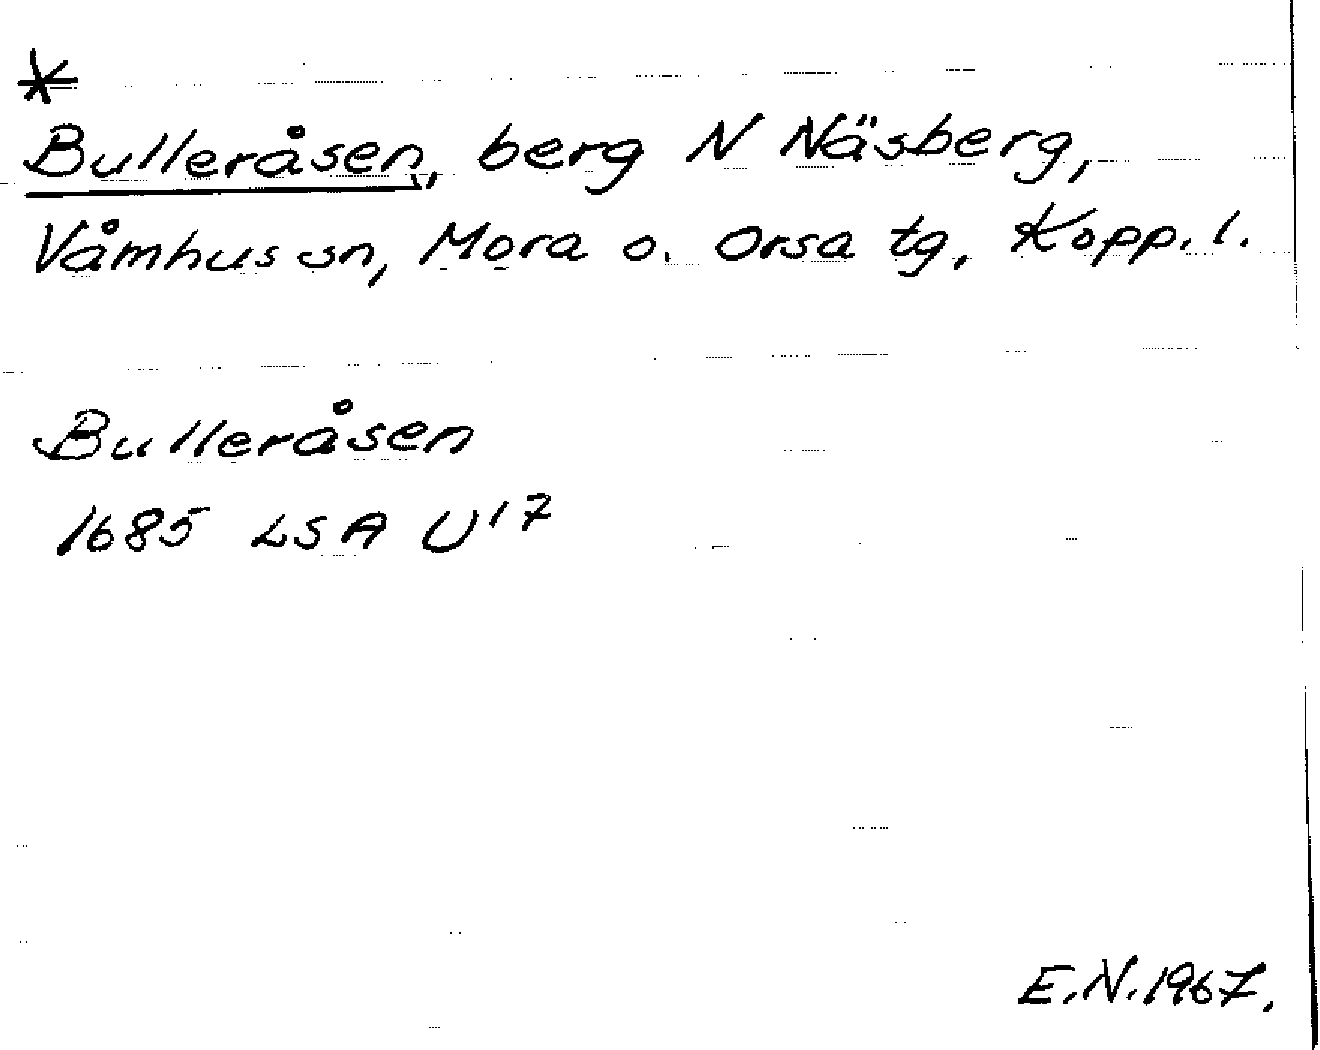 *
Bulleråsen, berg N Näsberg,
Våmhus sn, Mora o. Orsa tg, Kopp. l.
Bulleråsen
1685 LSA U¹⁷
E.N. 1967.